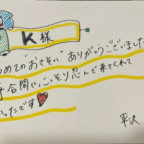 K様
めての"おさそい" ありがとうございました
合間に、こっそり忍んで来てくれて
したです
平沢